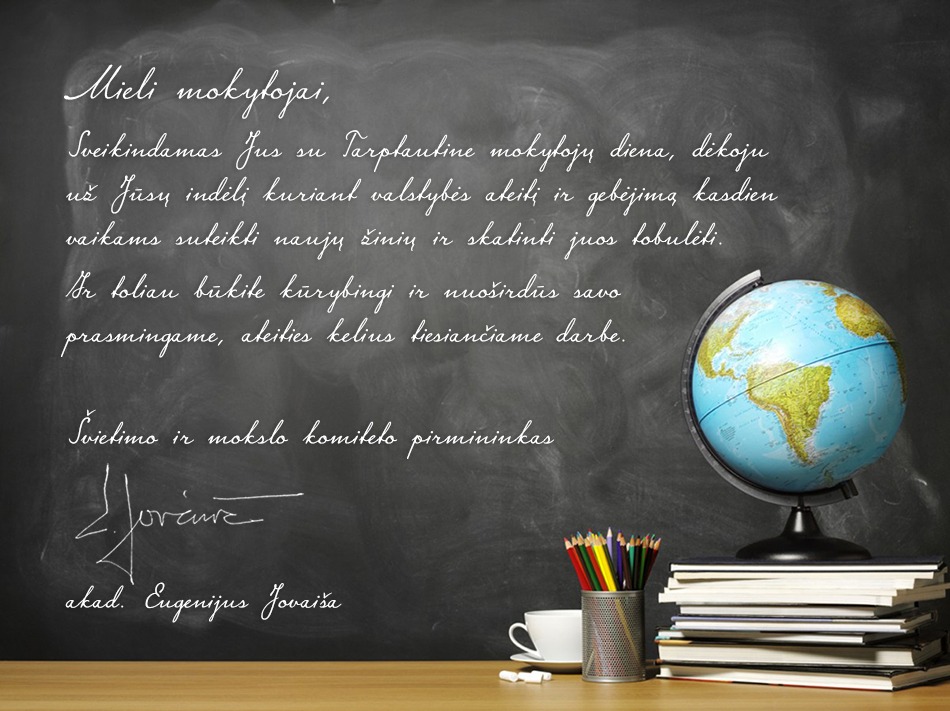 Mieli mokytojai,
Sveikindamas Jus su Tarptautine mokytojų diena, dėkoju
už Jūsų indėlį kuriant valstybės ateitį ir gebėjimą kasdien
vaikams suteikti naujų žinių ir skatinti juos tobulėti.
Ir toliau būkite kūrybingi ir nuoširdūs savo
prasmingame, ateities kelius tiesiančiame darbe.
Švietimo ir mokslo komiteto pirmininkas
E. Jovaiša
akad. Eugenijus Jovaiša